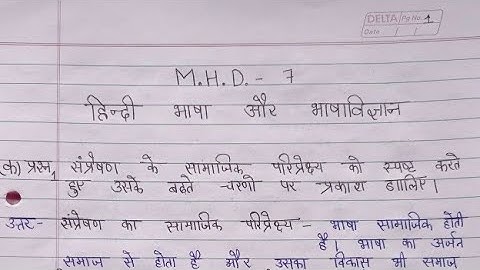 DELTA Pg No. 1
Date / /
M.H.D. - 7
हिन्दी भाषा और भाषाविज्ञान
(क) प्रश्न 1 संप्रेषण के सामाजिक परिप्रेक्ष्य को स्पष्ट करते
हुए उसके बढते चरणो पर प्रकाश डालिए।
उत्तर - संप्रेषण का सामाजिक परिप्रेक्ष्य - भाषा सामाजिक होती
है। भाषा का अर्जन
समाज से होता है और उसका विकास भी समाज